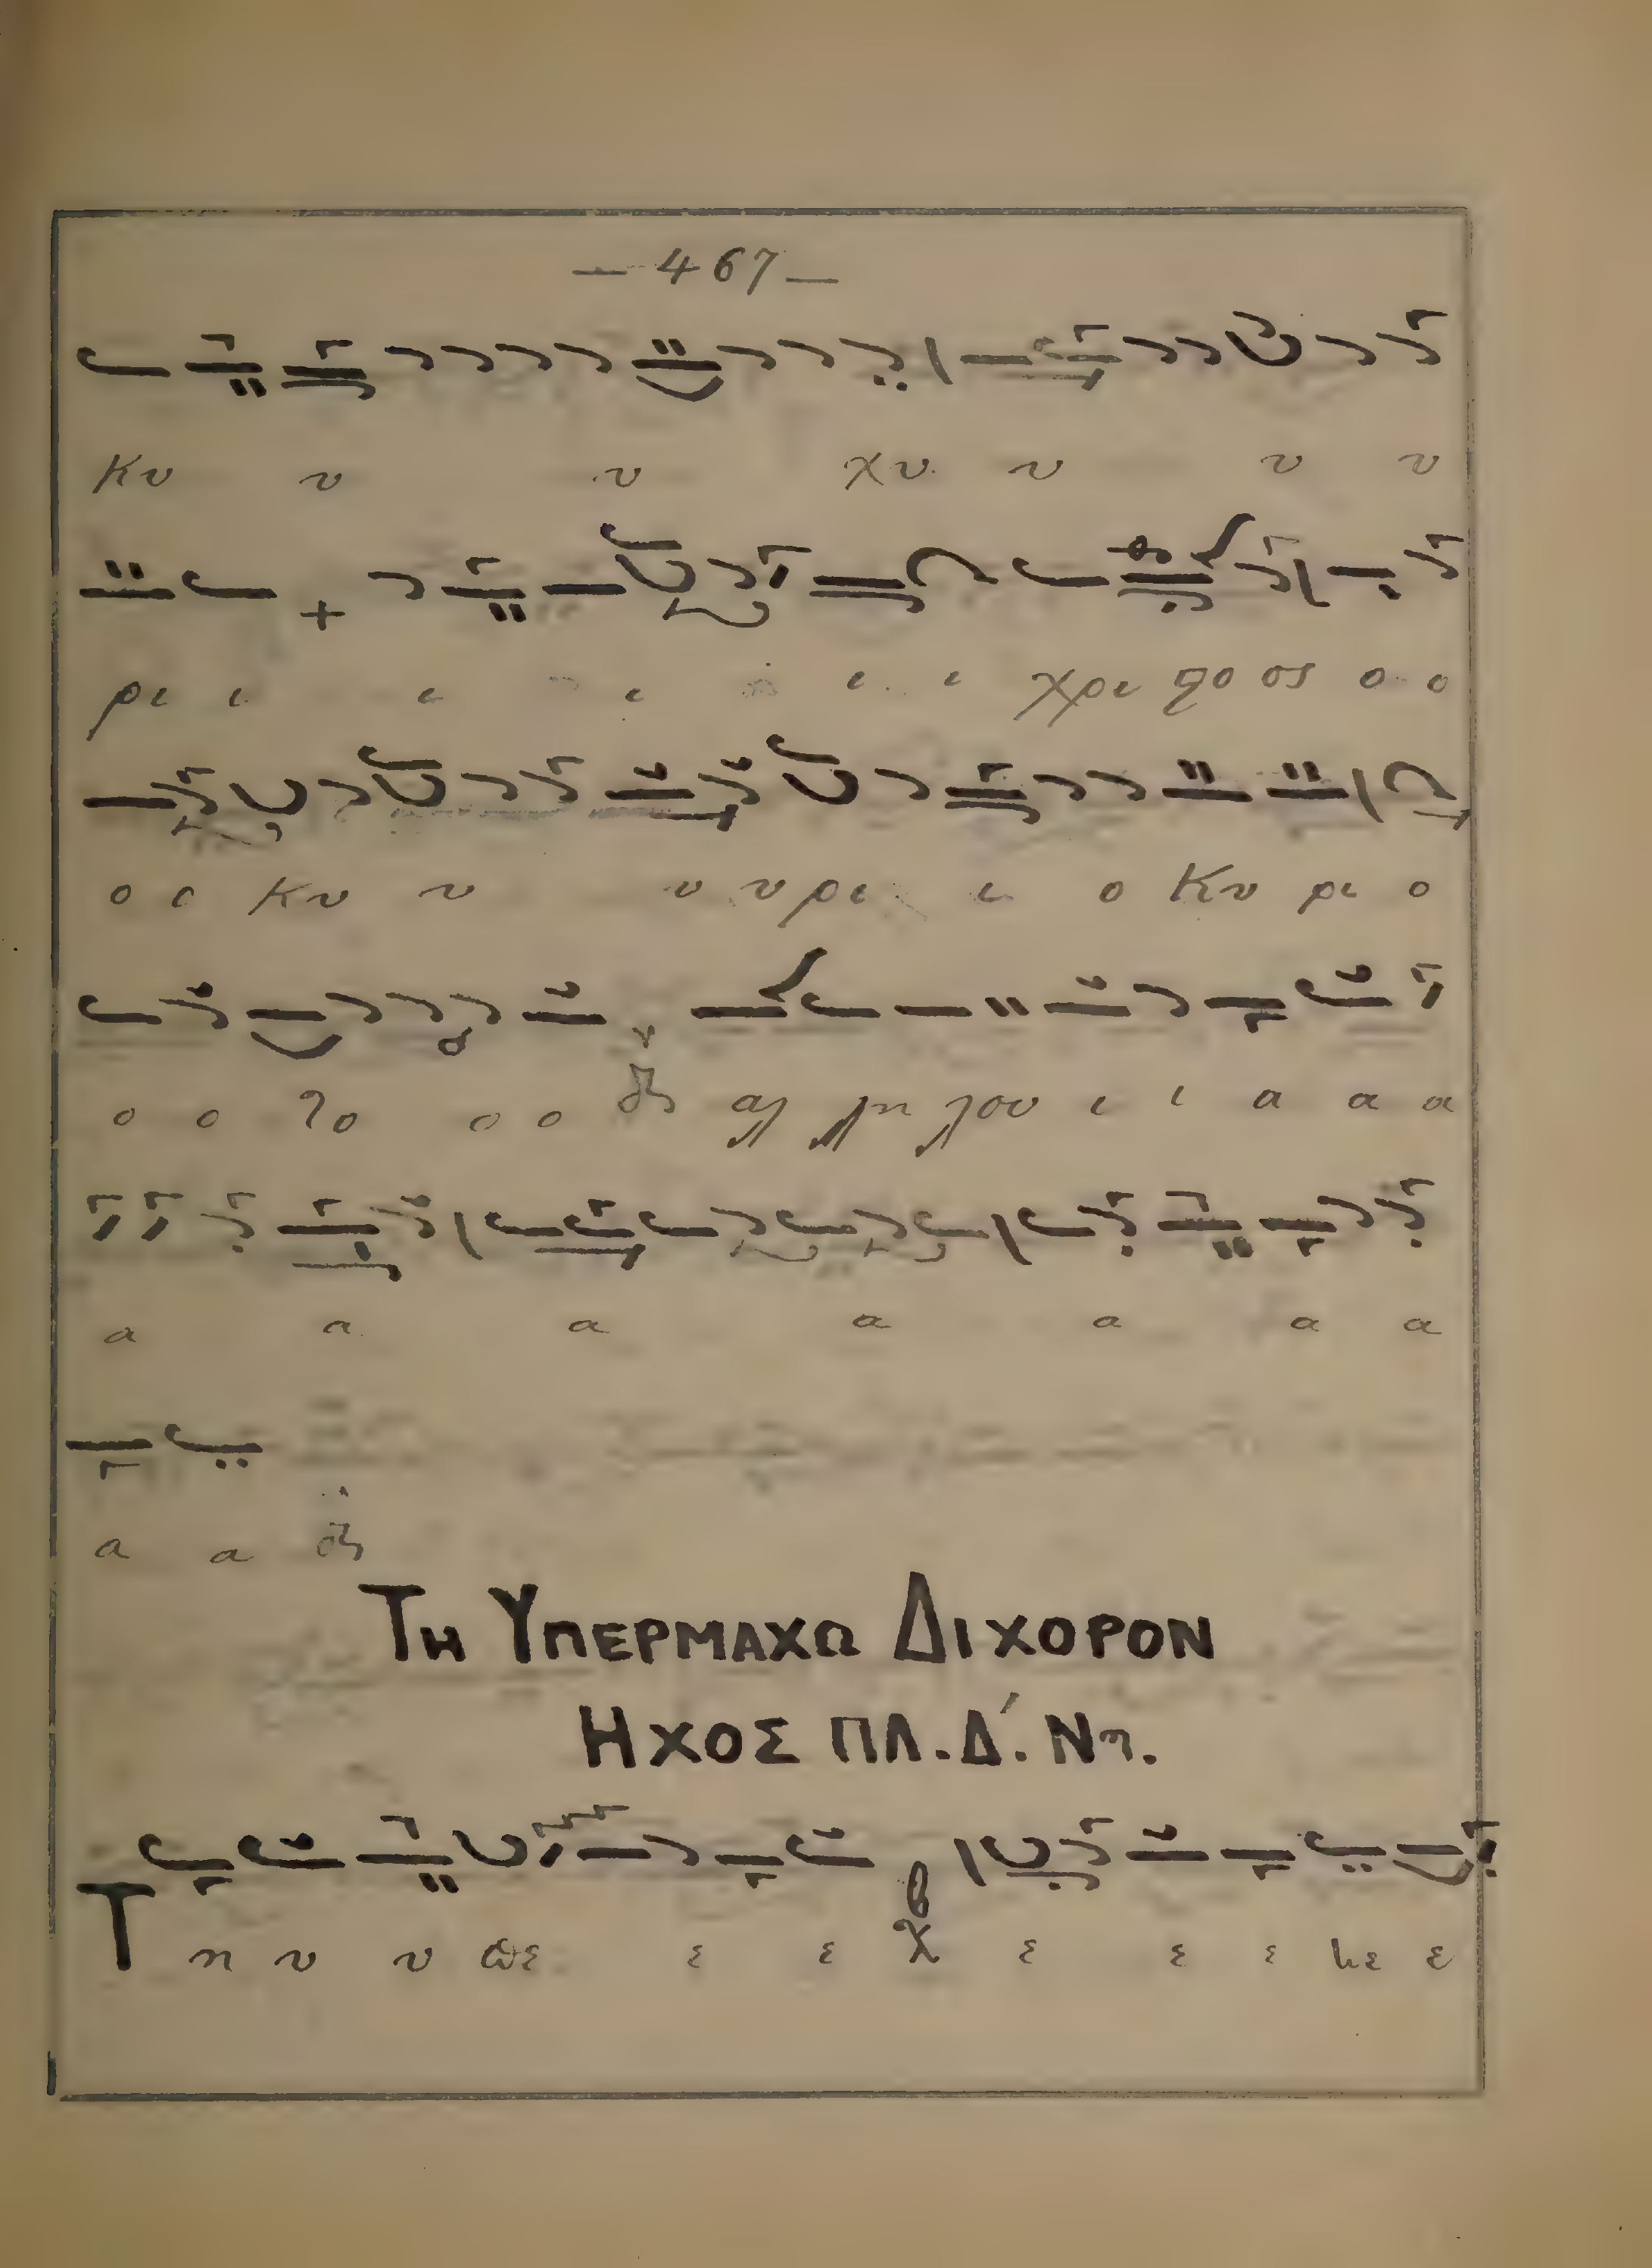 — 467 —
Κυ υ υ χυ υ υ υ
ρι ι ι ι ι ι χρι ϛο ος ο ο
ο ο Κυ υ υ υ ρι ι ο Κυ ρι ο
ο ο το ο ο αλ λη λου ι ι α α α
α α α α α α α
α α
ΤΗ ΥΠΕΡΜΑΧΩ ΔΙΧΟΡΟΝ
ΗΧΟΣ ΠΛ.Δ΄. Νη.
Τ η υ υ πε ε ε ε ε ε με ε